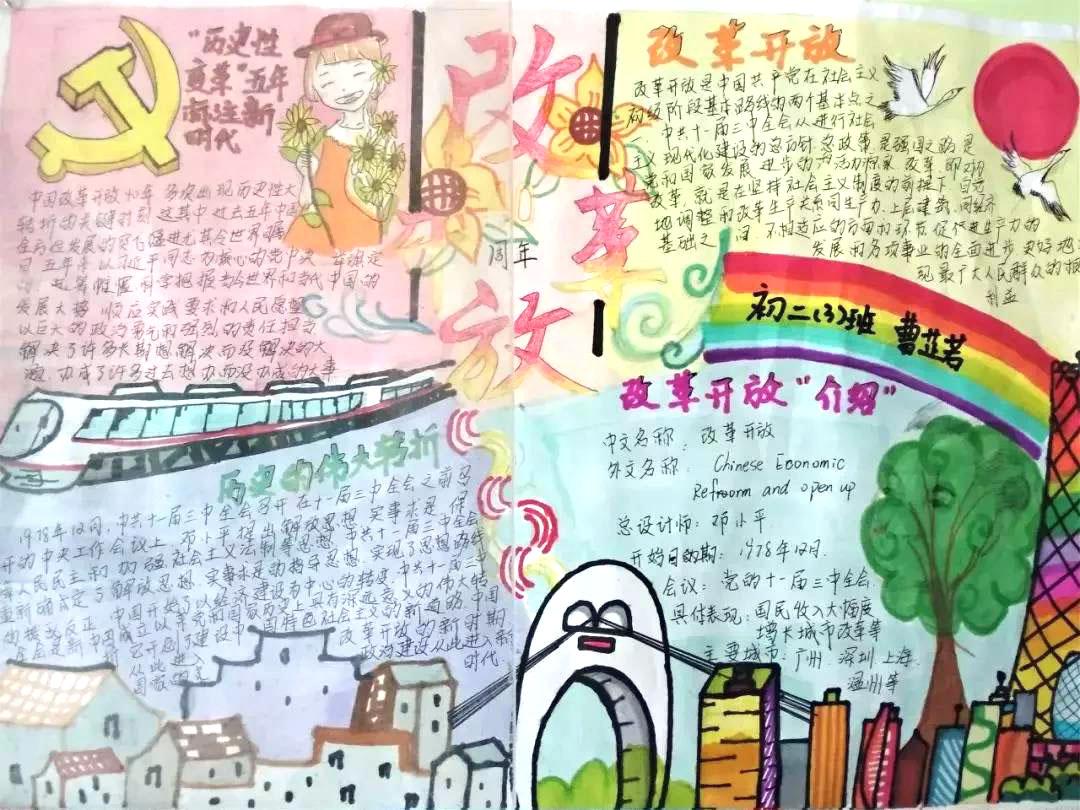 "历史性
变革"五年
标注新
时代
中国改革开放40年 多次出现历史性大
转折的关键时刻 这其中 过去五年中国
全方位发展的突飞猛进尤其令世界瞩
目 五年来以习近平同志为核心的党中央
科学把握当今世界和当代中国的
发展大势 顺应实践要求和人民愿望
以巨大的政治勇气和强烈的责任担当
解决了许多长期想解决而没解决的大
办成了许多过去想办而没办成的大事
改
革
放
周年
改革开放
改革开放是中国共产党在社会主义
初级阶段基本路线的两个基本点之
中共十一届三中全会以 进行社会
主义现代化建设的总方针 总政策 是强国之路 是
党和国家发展进步的活力源泉 改革 即对内
改革 就是在坚持社会主义制度的前提下 自觉
地调整和改革生产关系同生产力、上层建筑 同经济
基础之 间 不相适应的方面和环节 促进生产力的
发展和各项事业的全面进步 更好地
现最广大人民群众的根
利益
初二(3)班 曹芷若
历史的伟大转折
1978年12月,中共十一届三中全会召开 在十一届三中全会之前召
开的中央工作会议上 邓小平提出解放思想 实事求是 保
障人民民主和加强社会主义法制等思想 中共十一届三中全会
重新确定了解放思想 实事求是的指导思想 实现了思想路线
的拨乱反正 中国开始了以经济建设为中心的转变 中共十一届三中
全会是新中国成立以来党和国家历史上具有深远意义的伟大转
它开启了建设中国特色社会主义的新道路 中国
从此进入 改革开放的新时期
国家的 政治建设从此进入新
时代
改革开放"介绍"
中文名称: 改革开放
外文名称: Chinese Economic
Refroorm and open up
总设计师: 邓小平
开始日期: 1978年12月.
会议: 党的十一届三中全会
具体表现: 国民收入大幅度
增长城市改革等
主要城市: 广州. 深圳. 上海.
温州等